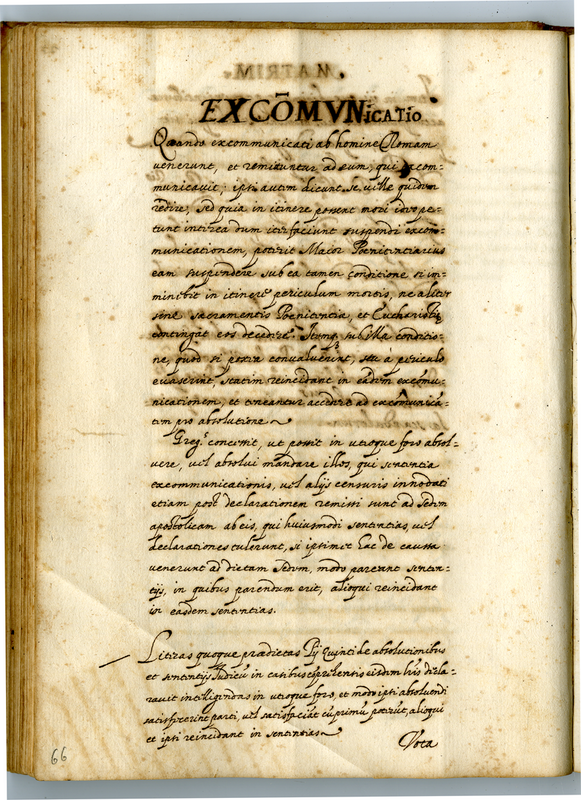 EXCŌMVNicATio
Quando excommunicati ab homine Romam
uenerunt, et remittuntur ad eum, qui excom-
municauit; ipsi autem dicunt se uelle quidem
redire, sed quia in itinere possent mori ideo pe-
tunt interea dum iter faciunt suspendi excom-
municationem, poterit Maior Poenitentiarius
eam suspendere sub ea tamen conditione si im-
minebit in itinere periculum mortis, ne aliter
sine sacramentis Poenitentia, et Eucharistia
contingat eos decedere. sub illa conditio-
ne, quod si postea conualuerint, seu à periculo
euaserint, statim reincidant in eadem excomu-
nicationem, et teneantur accedere ad excōmunica-
tem pro absolutione
Greg.s concessit, ut possit in utroque foro absol-
uere, uel absolui mandare illos, qui sententia
excommunicationis, uel alijs censuris innodati
etiam post declarationem remissi sunt ad Sedem
apostolicam ab eis, qui huiusmodi sententias, uel
declarationes tulerunt, si ipsimet hac de caussa
uenerunt ad dictam Sedem, modo pareant senten-
tijs, in quibus parendum erit, alioqui reincidant
in easdem sententias.
Literas quoque praedictas Pij Quinti de absolutionibus
et sententijs Iudicū in casibus expressis eisdem lris decla-
rauit intelligendas in utroque foro, et modo ipsi absoluendi
satisfecerint parti, uel satisfaciāt cū primū poterūt, alioqui
et ipsi reincidant in sententias
Vota
66
MATRIM.